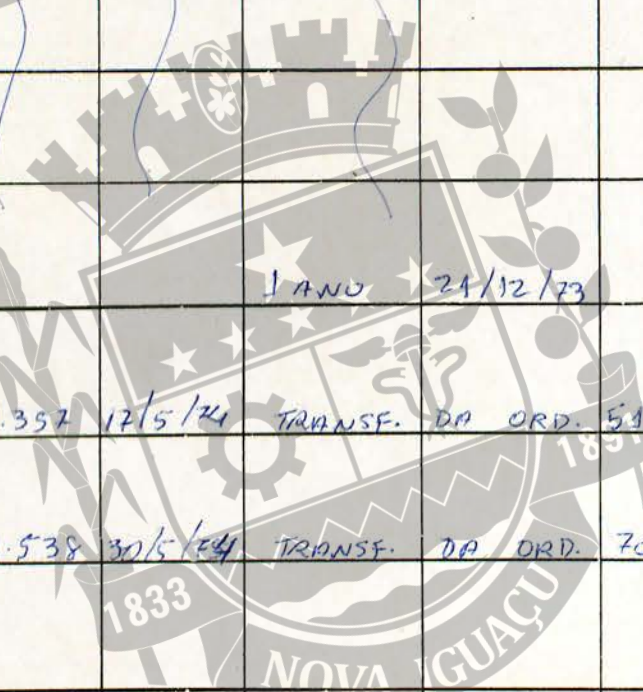 1 ANO 21/12/73
.397 17/5/74 TRANSF. DA ORD. 51
.538 30/5/74 TRANSF. DA ORD. 70
1833 1891
NOVA IGUAÇU